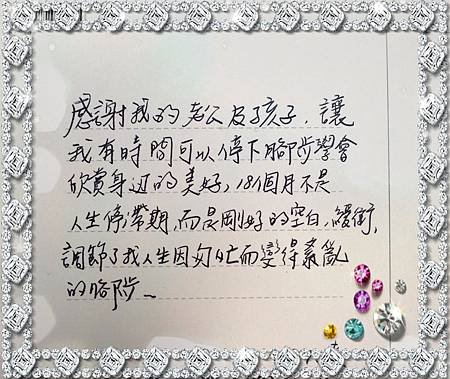 感謝我的老公及孩子，讓
我有時間可以停下腳步學會
欣賞身边的美好，18個月不是
人生停滯期，而是剛好的空白、緩衝，
調節了我人生因匆忙而變得紊亂
的腳步~